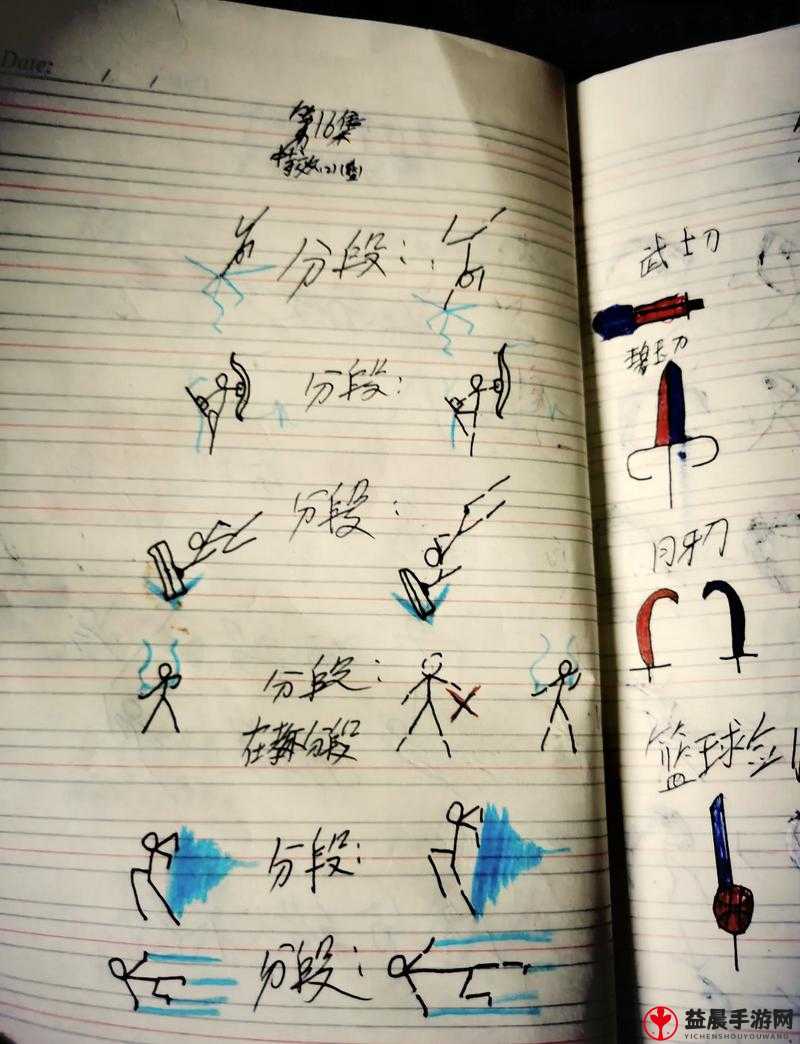 Date:
第16集
特效(2)
分段:
分段:
分段:
分段:
在教分段
分段:
分段:
武士刀
碧玉刀
月牙刀
篮球剑
益晨手游网
YICHENSHOUYOUWANG